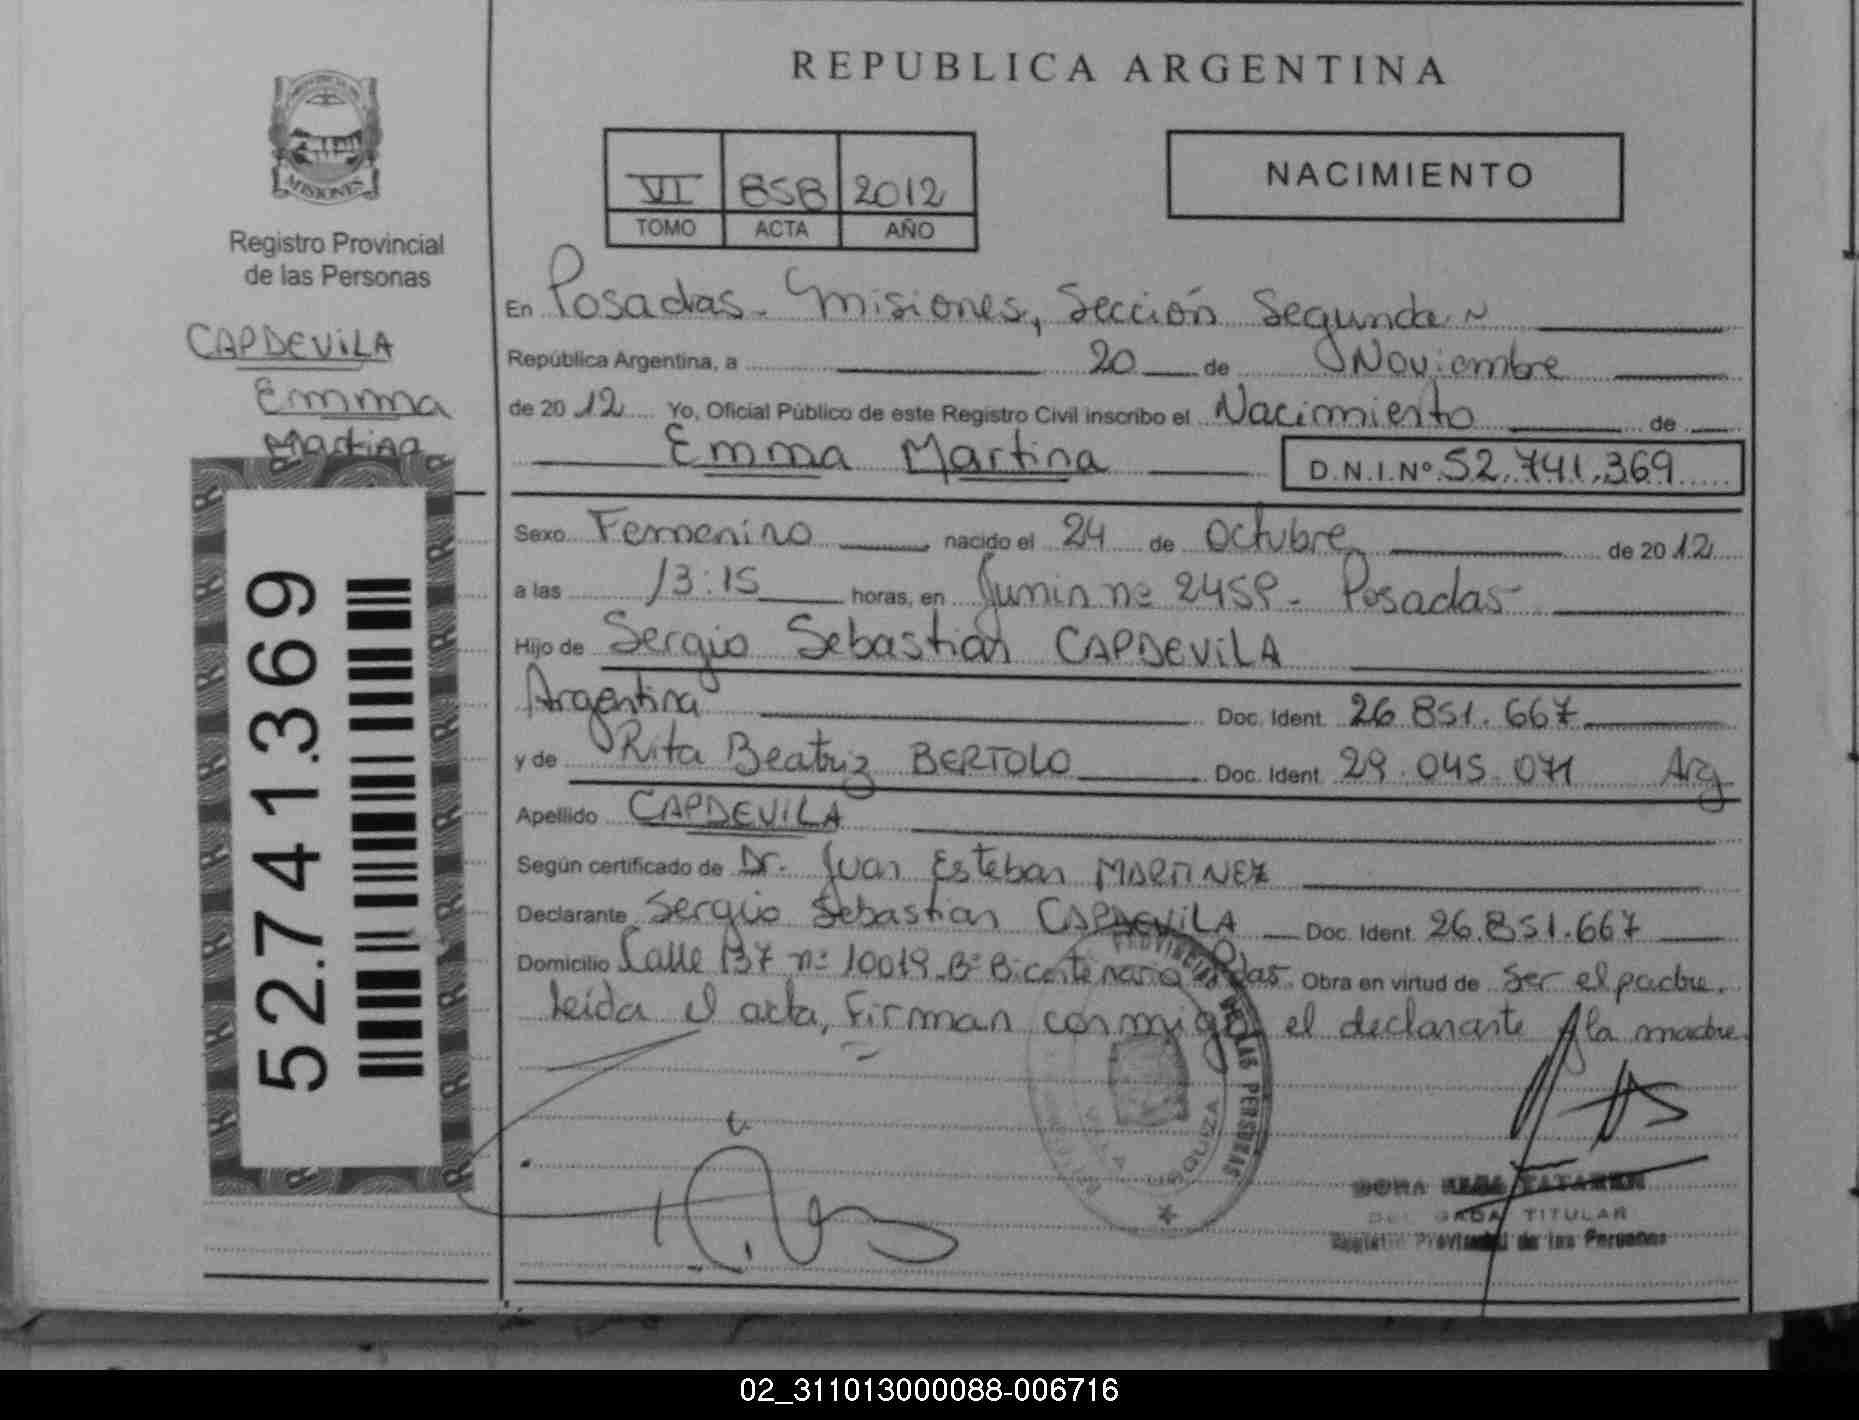 REPUBLICA ARGENTINA
MISIONES
Registro Provincial
de las Personas
CAPDEVILA
Emma
Martina
52.741.369
VI 858 2012
TOMO ACTA AÑO
NACIMIENTO
En Posadas - Misiones, Sección Segunda
República Argentina, a 20 de Noviembre
de 2012 Yo, Oficial Público de este Registro Civil inscribo el Nacimiento de
Emma Martina D.N.I.Nº 52.741.369
Sexo Femenino nacido el 24 de Octubre de 2012
a las 13:15 horas, en Junin nº 2459 - Posadas-
Hijo de Sergio Sebastián CAPDEVILA
Argentina Doc. Ident. 26.851.667
y de Rita Beatriz BERTOLO Doc. Ident. 29.045.071 Arg
Apellido CAPDEVILA
Según certificado de Dr. Juan Esteban MARTINEZ
Declarante Sergio Sebastian CAPDEVILA Doc. Ident. 26.851.667
Domicilio Calle 137 nº 10019 Bº Bicentenario Pdas. Obra en virtud de ser el padre.
leída el acta, Firman conmigo el declarante y la madre
PROVINCIAL DE LAS PERSONAS
VILLA URQUIZA
DORA
TITULAR
Registro Provincial de las Personas
02_311013000088-006716